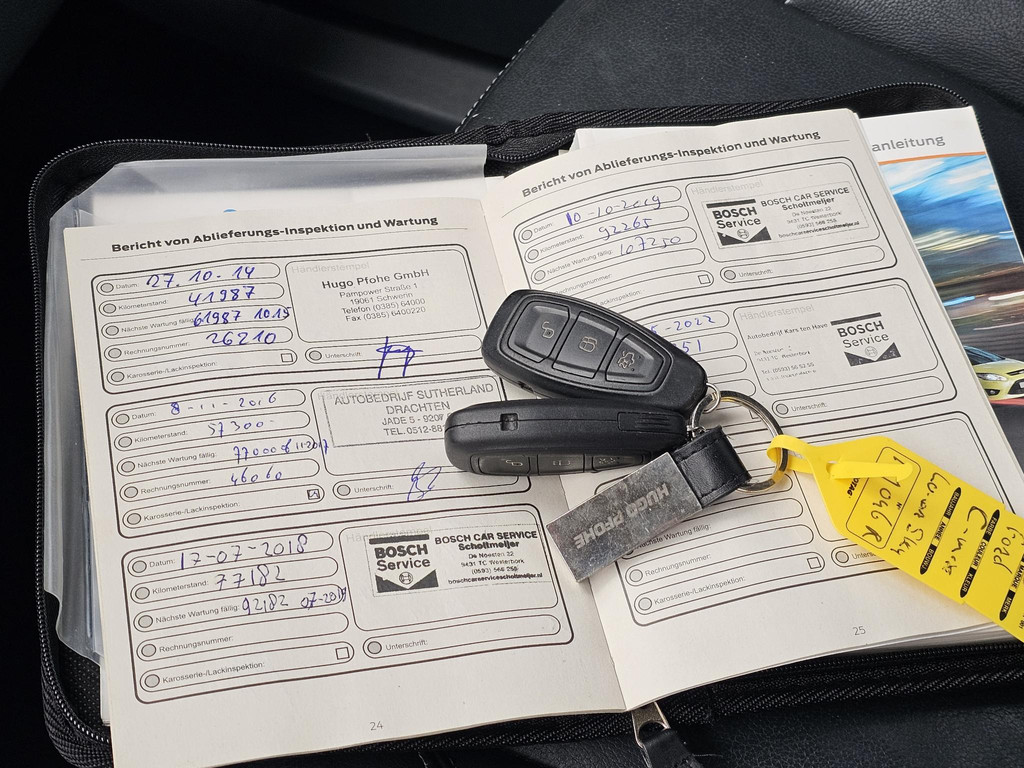 Bericht von Ablieferungs-Inspektion und Wartung
Datum: 27.10-14
Kilometerstand: 41987
Nächste Wartung fällig: 61987 10.15
Rechnungsnummer: 26210
Karosserie-/Lackinspektion:
Händlerstempel
Hugo Pfohe GmbH
Pampower Straße 1
19061 Schwerin
Telefon (0385) 64000
Fax (0385) 6400220
Unterschrift:
Datum: 8-11-2016
Kilometerstand: 57300-
Nächste Wartung fällig: 77000 11-2017
Rechnungsnummer: 46060
Karosserie-/Lackinspektion:
AUTOBEDRIJF SUTHERLAND
DRACHTEN
JADE 5 - 9207
TEL. 0512-88
Unterschrift:
Datum: 17-07-2018
Kilometerstand: 77182
Nächste Wartung fällig: 92182 07-2019
Rechnungsnummer:
Karosserie-/Lackinspektion:
BOSCH
Service
BOSCH CAR SERVICE
Scholtmeijer
De Noesten 22
9431 TC Westerbork
(0593) 566 258
boschcarservicescholtmeijer.nl
Unterschrift:
24
Bericht von Ablieferungs-Inspektion und Wartung
Datum: 10-10-2019
Kilometerstand: 92265
Nächste Wartung fällig: 107250
Händlerstempel
BOSCH
Service
BOSCH CAR SERVICE
Scholtmeijer
De Noesten 22
9431 TC Westerbork
(0593) 566 258
boschcarservicescholtmeijer.nl
Unterschrift:
5-2022
51
Händlerstempel
Autobedrijf Kars ten Have
BOSCH
Service
Unterschrift:
Rechnungsnummer:
Karosserie-/Lackinspektion:
25
HUGO PFOHE
1046R
anleitung